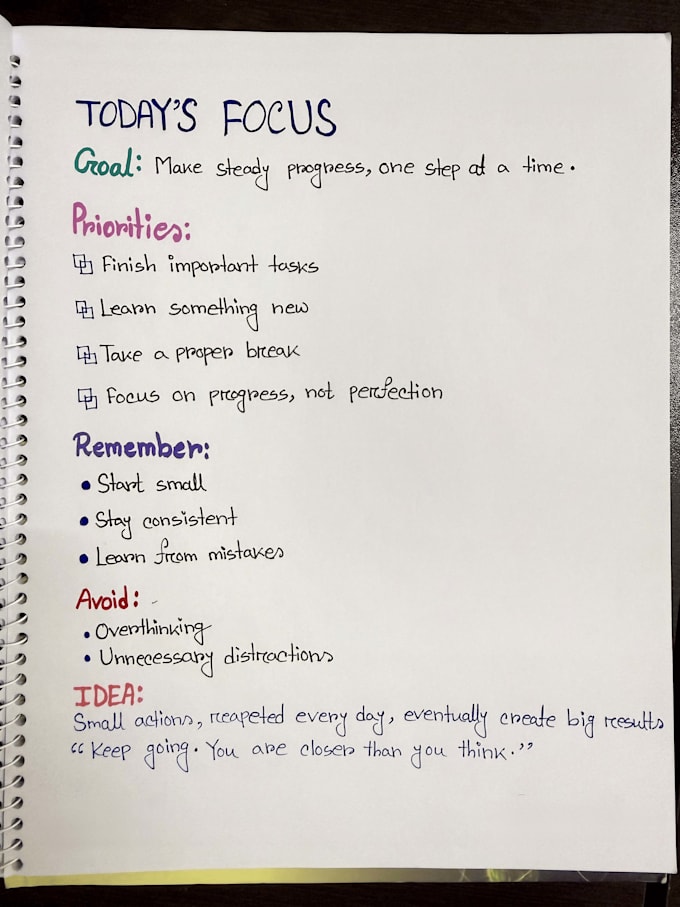 TODAY'S FOCUS
Goal: Make steady progress, one step at a time.
Priorities:
Finish important tasks
Learn something new
Take a proper break
Focus on progress, not perfection
Remember:
• Start small
• Stay consistent
• Learn from mistakes
Avoid:
• Overthinking
• Unnecessary distractions
IDEA:
Small actions, reapeted every day, eventually create big results
"Keep going. You are closer than you think."